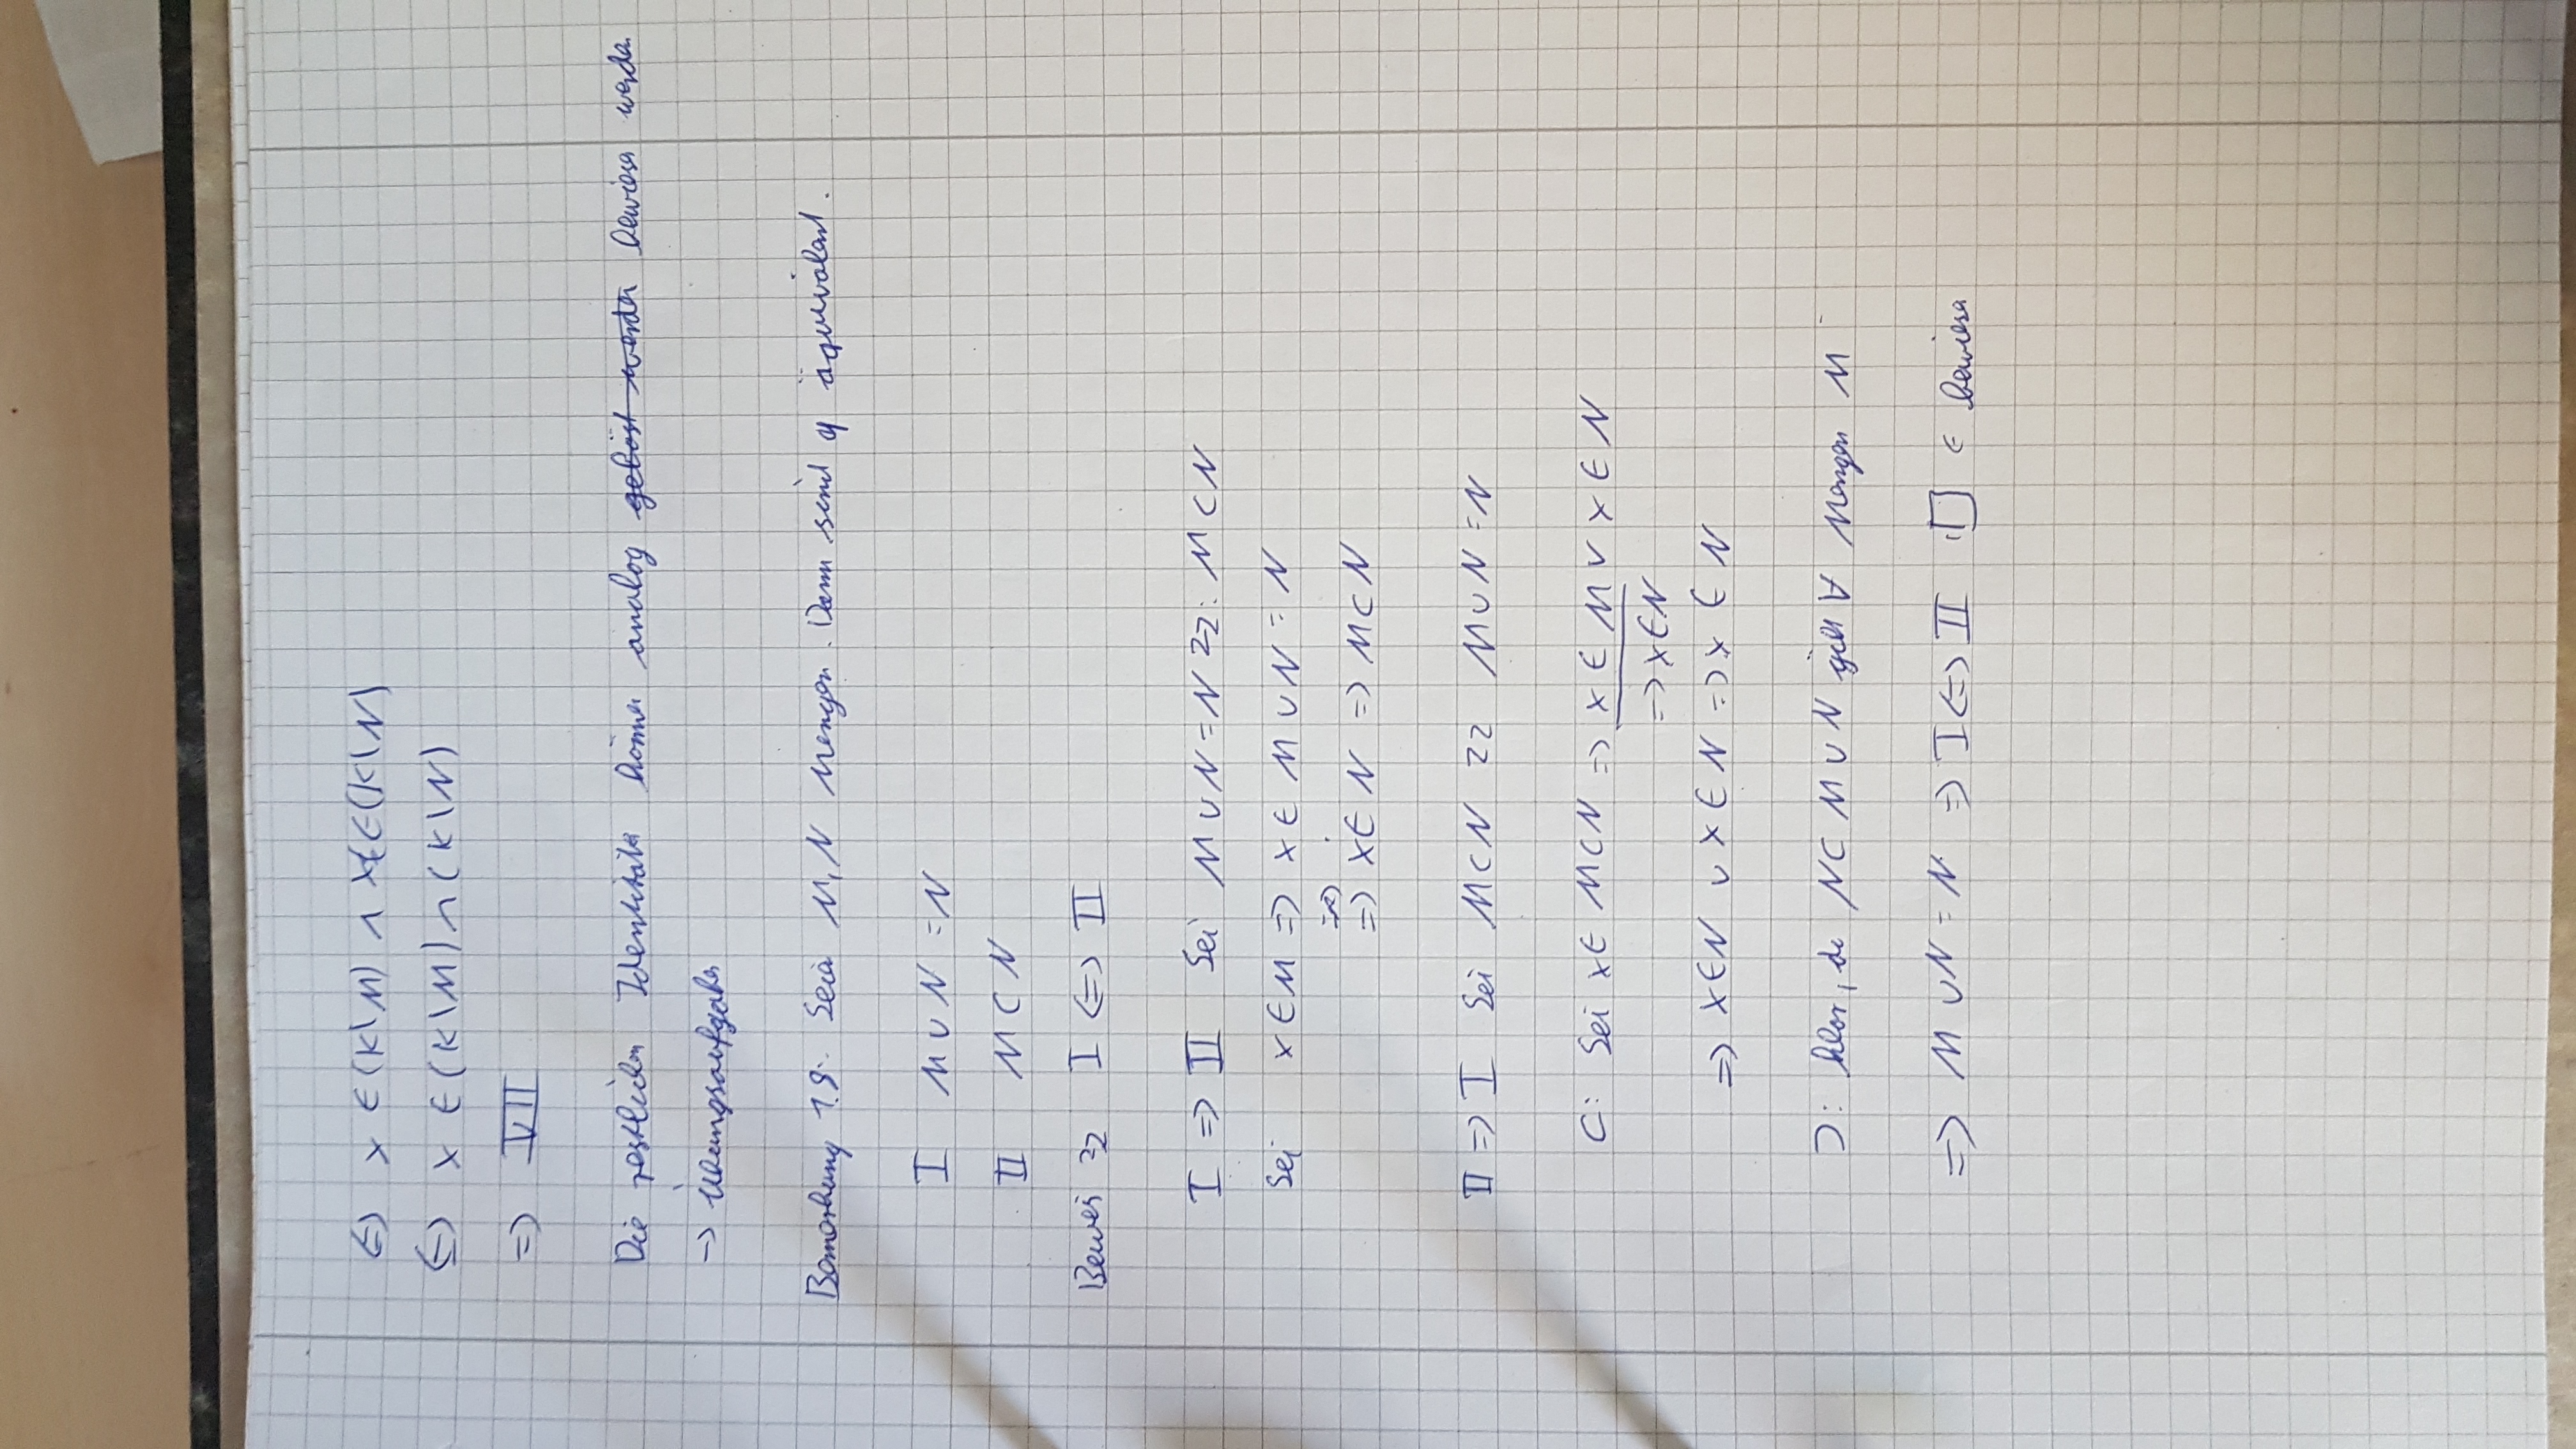 ⇔ x ∈ (K\M) ∧ x ∈ (K\N)
⇔ x ∈ (K\M) ∩ (K\N)
⇒ VII
Die restlichen Identitäten können analog gelöst werden bewiesen werden
→ Übungsaufgaben
Bemerkung 1.9: Seien M, N Mengen. Dann sind äquivalent.
I M ∪ N = N
II M ⊂ N
Beweis zz I ⇔ II
I ⇒ II Sei M ∪ N = N zz: M ⊂ N
Sei x ∈ M ⇒ x ∈ M ∪ N = N
⇒ x ∈ N ⇒ M ⊂ N
II ⇒ I Sei M ⊂ N zz M ∪ N = N
⊂: Sei x ∈ M ⊂ N ⇒ x ∈ M ∨ x ∈ N
⇒ x ∈ N
⇒ x ∈ N ∨ x ∈ N ⇒ x ∈ N
⊃: klar, da N ⊂ M ∪ N gilt ∀ Mengen M
⇒ M ∪ N = N ⇒ I ⇔ II □ ← bewiesen